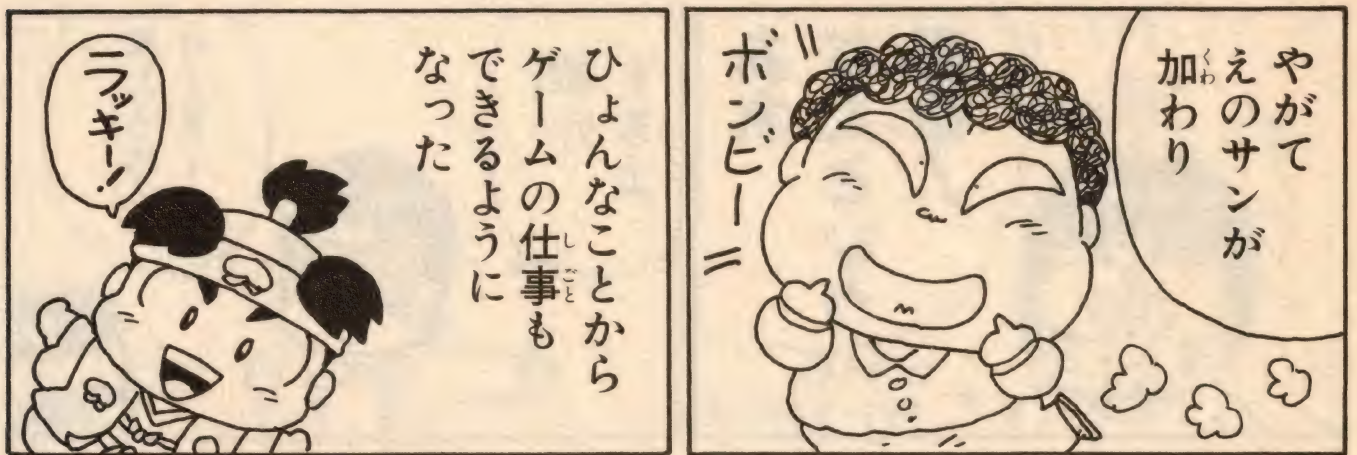 やがて
えのサンが
加わり
くわ
ボンビー
ひょんなことから
ゲームの仕事も
しごと
できるように
なった
ラッキー!